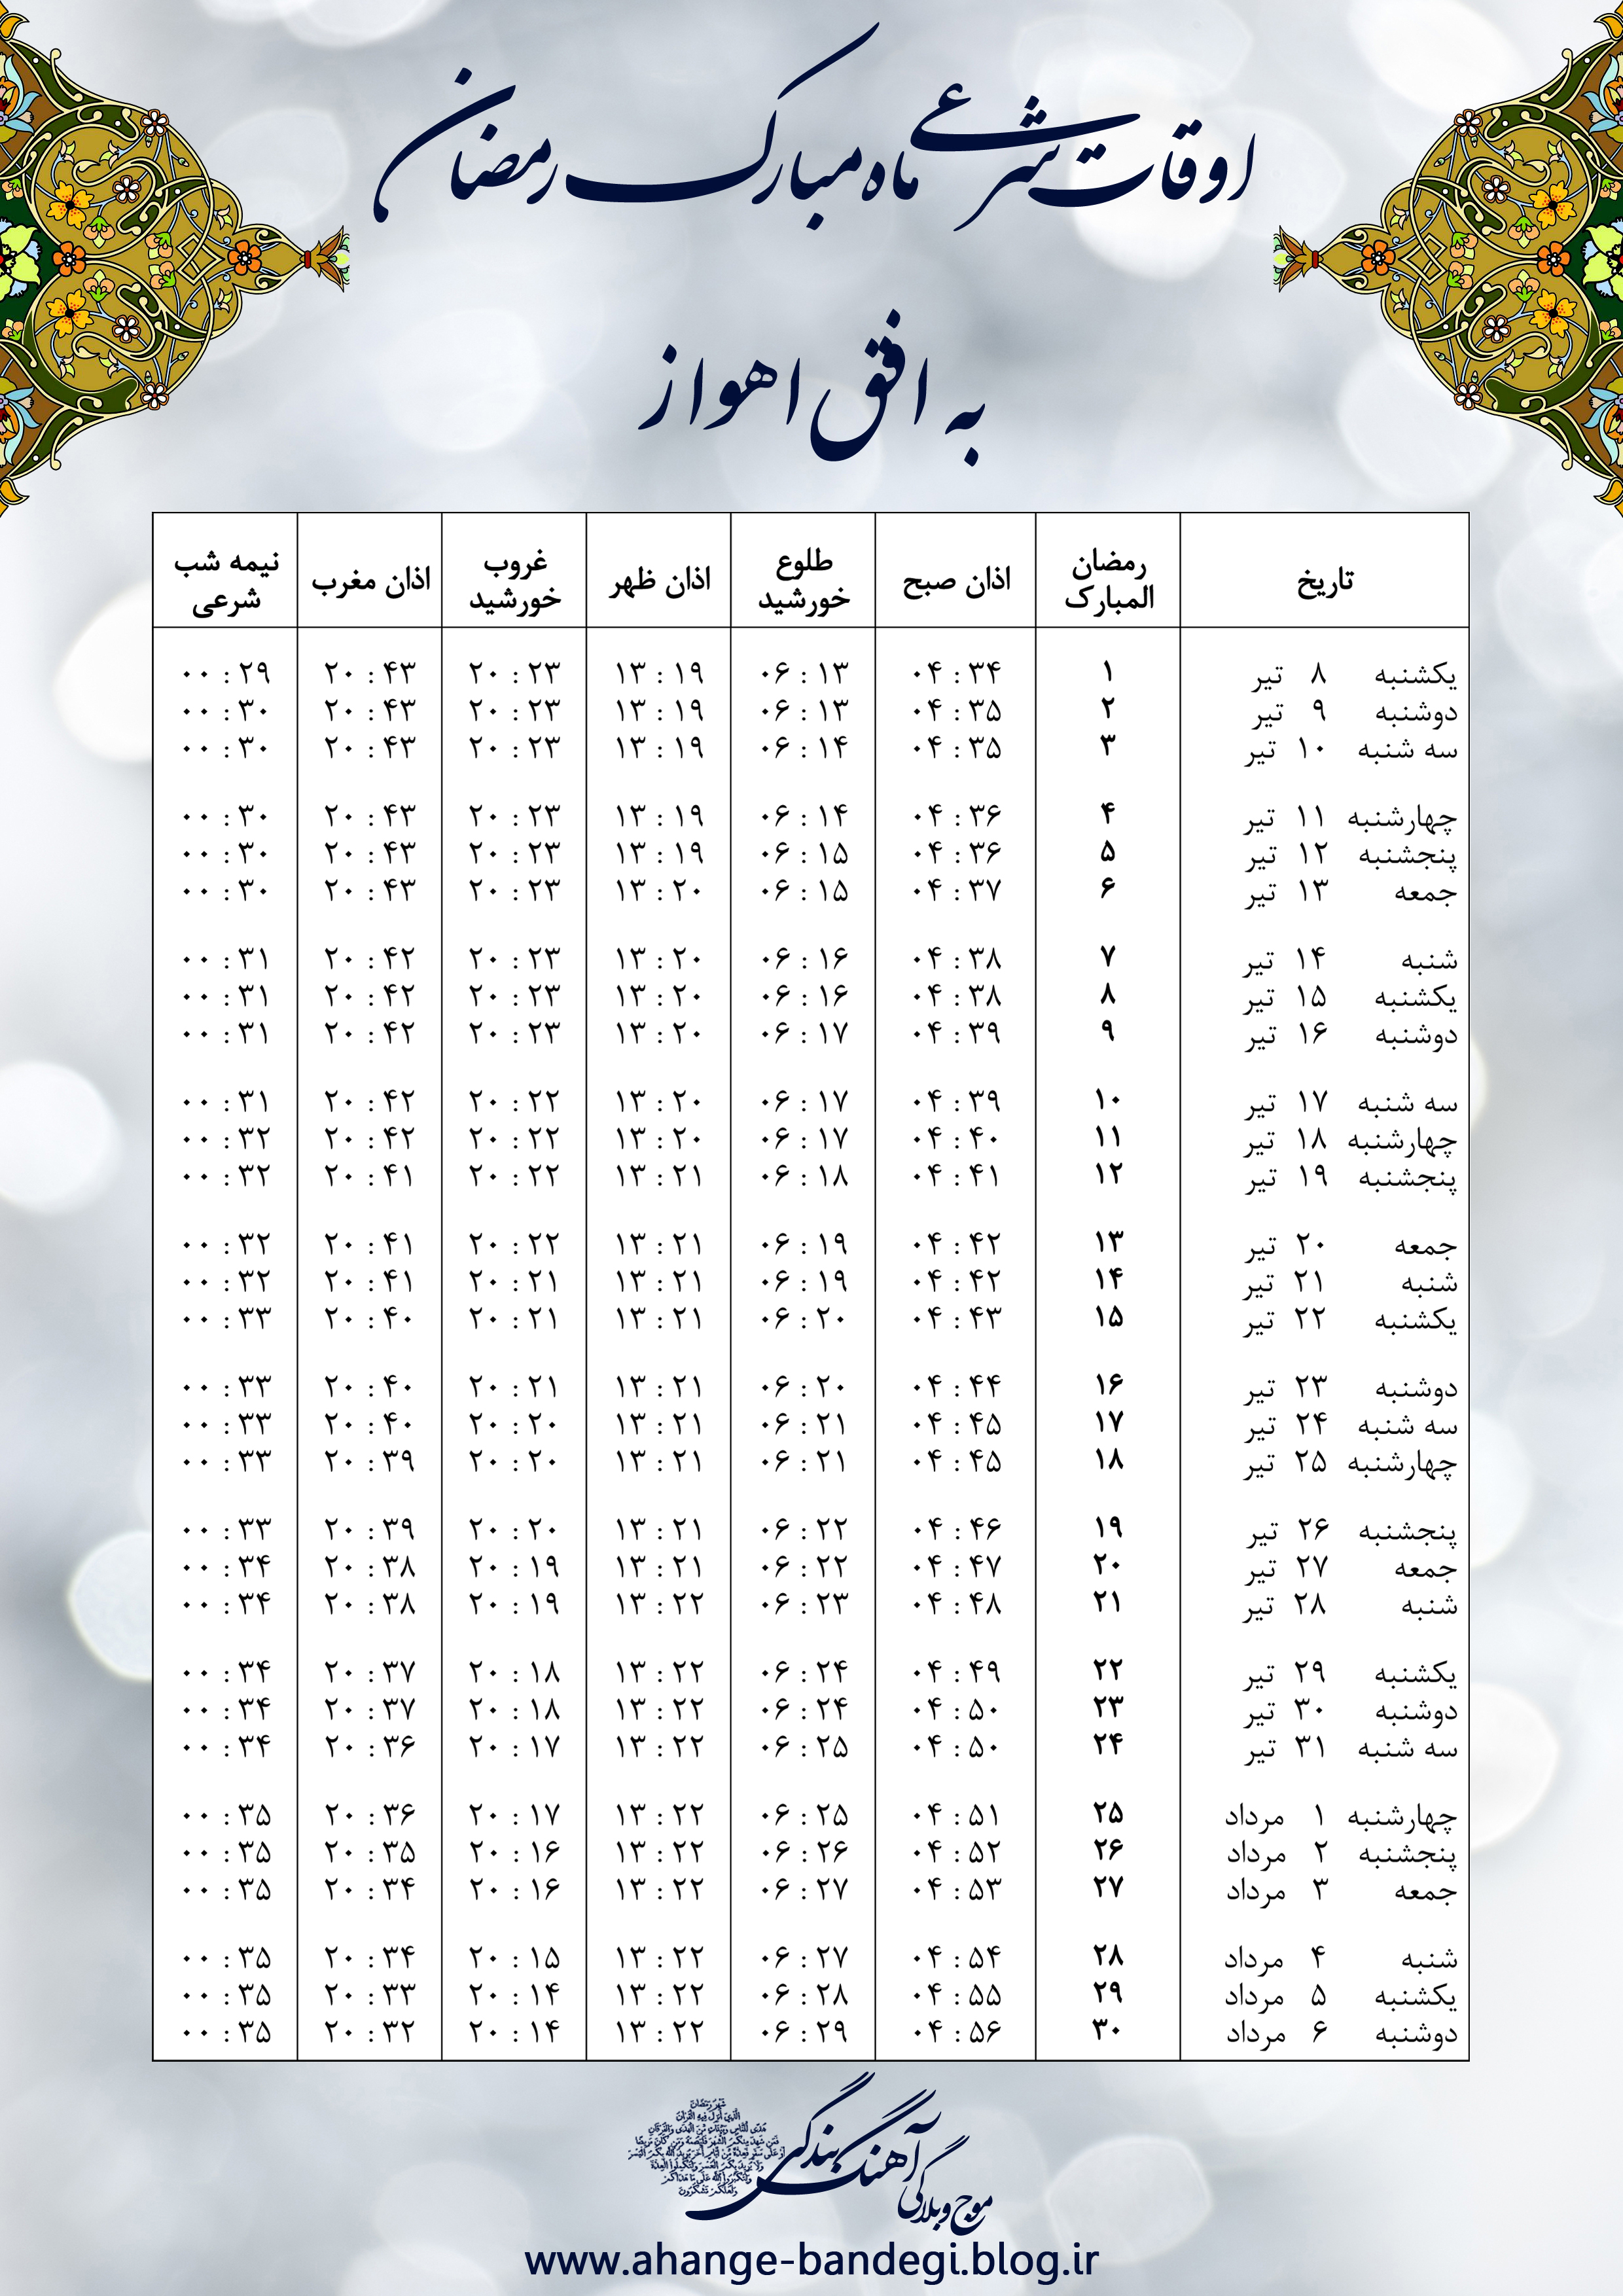 اوقات شرعی ماه مبارک رمضان
به افق اهواز
تاریخ رمضان المبارک اذان صبح طلوع خورشید اذان ظهر غروب خورشید اذان مغرب نیمه شب شرعی
یکشنبه ۸ تیر ۱ ۰۴:۳۴ ۰۶:۱۳ ۱۳:۱۹ ۲۰:۲۳ ۲۰:۴۳ ۰۰:۲۹
دوشنبه ۹ تیر ۲ ۰۴:۳۵ ۰۶:۱۳ ۱۳:۱۹ ۲۰:۲۳ ۲۰:۴۳ ۰۰:۳۰
سه شنبه ۱۰ تیر ۳ ۰۴:۳۵ ۰۶:۱۴ ۱۳:۱۹ ۲۰:۲۳ ۲۰:۴۳ ۰۰:۳۰
چهارشنبه ۱۱ تیر ۴ ۰۴:۳۶ ۰۶:۱۴ ۱۳:۱۹ ۲۰:۲۳ ۲۰:۴۳ ۰۰:۳۰
پنجشنبه ۱۲ تیر ۵ ۰۴:۳۶ ۰۶:۱۵ ۱۳:۱۹ ۲۰:۲۳ ۲۰:۴۳ ۰۰:۳۰
جمعه ۱۳ تیر ۶ ۰۴:۳۷ ۰۶:۱۵ ۱۳:۲۰ ۲۰:۲۳ ۲۰:۴۳ ۰۰:۳۰
شنبه ۱۴ تیر ۷ ۰۴:۳۸ ۰۶:۱۶ ۱۳:۲۰ ۲۰:۲۳ ۲۰:۴۲ ۰۰:۳۱
یکشنبه ۱۵ تیر ۸ ۰۴:۳۸ ۰۶:۱۶ ۱۳:۲۰ ۲۰:۲۳ ۲۰:۴۲ ۰۰:۳۱
دوشنبه ۱۶ تیر ۹ ۰۴:۳۹ ۰۶:۱۷ ۱۳:۲۰ ۲۰:۲۳ ۲۰:۴۲ ۰۰:۳۱
سه شنبه ۱۷ تیر ۱۰ ۰۴:۳۹ ۰۶:۱۷ ۱۳:۲۰ ۲۰:۲۲ ۲۰:۴۲ ۰۰:۳۱
چهارشنبه ۱۸ تیر ۱۱ ۰۴:۴۰ ۰۶:۱۷ ۱۳:۲۰ ۲۰:۲۲ ۲۰:۴۲ ۰۰:۳۲
پنجشنبه ۱۹ تیر ۱۲ ۰۴:۴۱ ۰۶:۱۸ ۱۳:۲۱ ۲۰:۲۲ ۲۰:۴۱ ۰۰:۳۲
جمعه ۲۰ تیر ۱۳ ۰۴:۴۲ ۰۶:۱۹ ۱۳:۲۱ ۲۰:۲۲ ۲۰:۴۱ ۰۰:۳۲
شنبه ۲۱ تیر ۱۴ ۰۴:۴۲ ۰۶:۱۹ ۱۳:۲۱ ۲۰:۲۱ ۲۰:۴۱ ۰۰:۳۲
یکشنبه ۲۲ تیر ۱۵ ۰۴:۴۳ ۰۶:۲۰ ۱۳:۲۱ ۲۰:۲۱ ۲۰:۴۰ ۰۰:۳۳
دوشنبه ۲۳ تیر ۱۶ ۰۴:۴۴ ۰۶:۲۰ ۱۳:۲۱ ۲۰:۲۱ ۲۰:۴۰ ۰۰:۳۳
سه شنبه ۲۴ تیر ۱۷ ۰۴:۴۵ ۰۶:۲۱ ۱۳:۲۱ ۲۰:۲۰ ۲۰:۴۰ ۰۰:۳۳
چهارشنبه ۲۵ تیر ۱۸ ۰۴:۴۵ ۰۶:۲۱ ۱۳:۲۱ ۲۰:۲۰ ۲۰:۳۹ ۰۰:۳۳
پنجشنبه ۲۶ تیر ۱۹ ۰۴:۴۶ ۰۶:۲۲ ۱۳:۲۱ ۲۰:۲۰ ۲۰:۳۹ ۰۰:۳۳
جمعه ۲۷ تیر ۲۰ ۰۴:۴۷ ۰۶:۲۲ ۱۳:۲۱ ۲۰:۱۹ ۲۰:۳۸ ۰۰:۳۴
شنبه ۲۸ تیر ۲۱ ۰۴:۴۸ ۰۶:۲۳ ۱۳:۲۲ ۲۰:۱۹ ۲۰:۳۸ ۰۰:۳۴
یکشنبه ۲۹ تیر ۲۲ ۰۴:۴۹ ۰۶:۲۴ ۱۳:۲۲ ۲۰:۱۸ ۲۰:۳۷ ۰۰:۳۴
دوشنبه ۳۰ تیر ۲۳ ۰۴:۵۰ ۰۶:۲۴ ۱۳:۲۲ ۲۰:۱۸ ۲۰:۳۷ ۰۰:۳۴
سه شنبه ۳۱ تیر ۲۴ ۰۴:۵۰ ۰۶:۲۵ ۱۳:۲۲ ۲۰:۱۷ ۲۰:۳۶ ۰۰:۳۴
چهارشنبه ۱ مرداد ۲۵ ۰۴:۵۱ ۰۶:۲۵ ۱۳:۲۲ ۲۰:۱۷ ۲۰:۳۶ ۰۰:۳۵
پنجشنبه ۲ مرداد ۲۶ ۰۴:۵۲ ۰۶:۲۶ ۱۳:۲۲ ۲۰:۱۶ ۲۰:۳۵ ۰۰:۳۵
جمعه ۳ مرداد ۲۷ ۰۴:۵۳ ۰۶:۲۷ ۱۳:۲۲ ۲۰:۱۶ ۲۰:۳۴ ۰۰:۳۵
شنبه ۴ مرداد ۲۸ ۰۴:۵۴ ۰۶:۲۷ ۱۳:۲۲ ۲۰:۱۵ ۲۰:۳۴ ۰۰:۳۵
یکشنبه ۵ مرداد ۲۹ ۰۴:۵۵ ۰۶:۲۸ ۱۳:۲۲ ۲۰:۱۴ ۲۰:۳۳ ۰۰:۳۵
دوشنبه ۶ مرداد ۳۰ ۰۴:۵۶ ۰۶:۲۹ ۱۳:۲۲ ۲۰:۱۴ ۲۰:۳۲ ۰۰:۳۵
موج وبلاگی آهنگ بندگی
www.ahange-bandegi.blog.ir